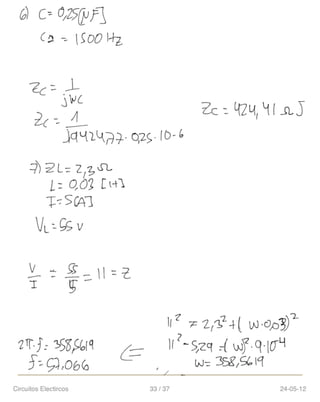 6) C = 0,25 [µF]
ω = 1500 Hz
Zc = 1 / jωC
Zc = 1 / j9424,77 · 0,25 · 10^-6
Zc = 424,41 Ω J
7) ZL = 2,3 Ω
L = 0,03 [H]
I = 5 [A]
VL = 55 V
V / I = 55 / 5 = 11 = Z
11² = 2,3² + (ω · 0,03)²
11² - 5,29 = (ω)² · 9 · 10^-4
ω = 358,5619
2π · f = 358,5619 ⇐
f = 57,066
Circuitos Electricos 33 / 37 24-05-12